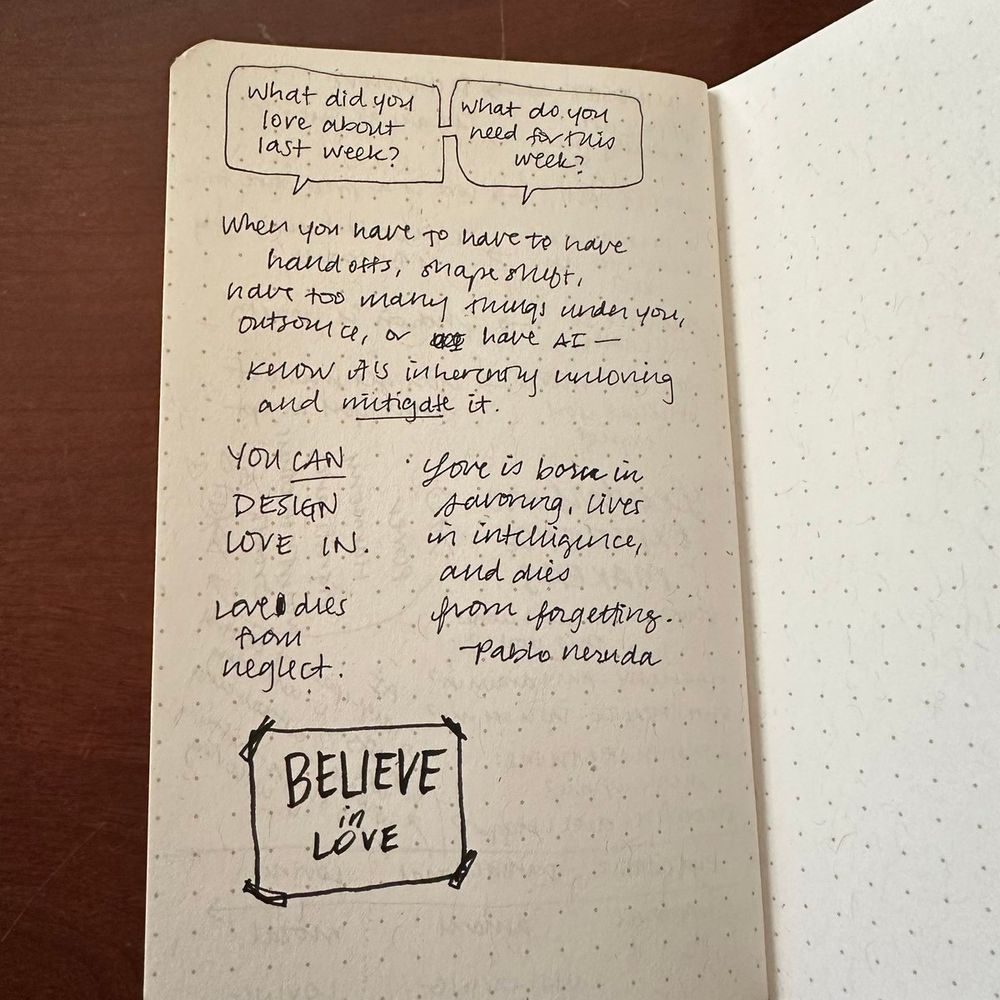 What did you
love about
last week?
What do you
need for this
week?
When you have to have to have
handoffs, shape shift,
have too many things under you,
outsource, or have AI —
know it's inherently unloving
and mitigate it.
YOU CAN
DESIGN
LOVE IN.
Love dies
from
neglect.
Love is born in
savoring, lives
in intelligence,
and dies
from forgetting.
-Pablo Neruda
BELIEVE
in
LOVE